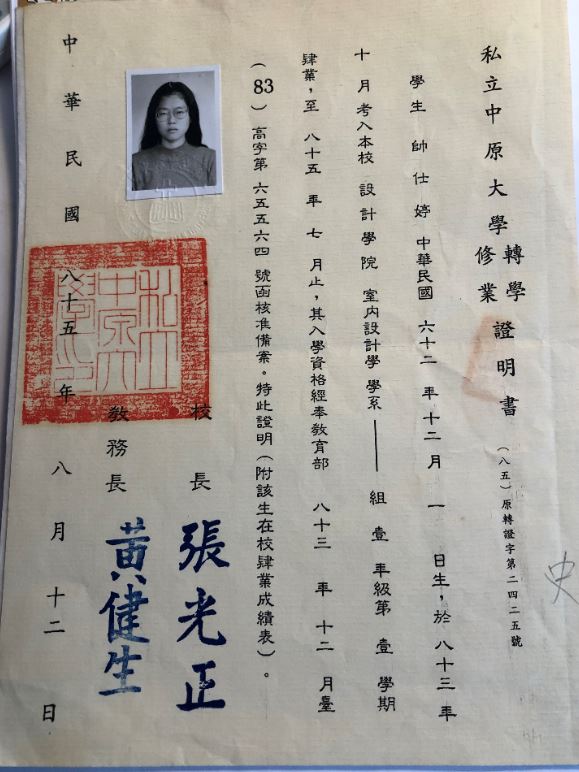 私立中原大學轉學修業證明書
(八五)原轉證字第二四二五號
學生 帥仕婷 中華民國 六十二 年 十二 月 一 日生，於 八十三 年
十 月考入本校 設計 學院 室內設計學 學系 —— 組 壹 年級第 壹 學期
肄業，至 八十五 年 七 月止，其入學資格經奉教育部 八十三 年 十二 月臺
(83) 高字第 六五五六四 號函核准備案。特此證明(附該生在校肄業成績表)。
校長 張光正
教務長 黃健生
中華民國 八十五 年 八 月 十二 日
私立中原大學
史